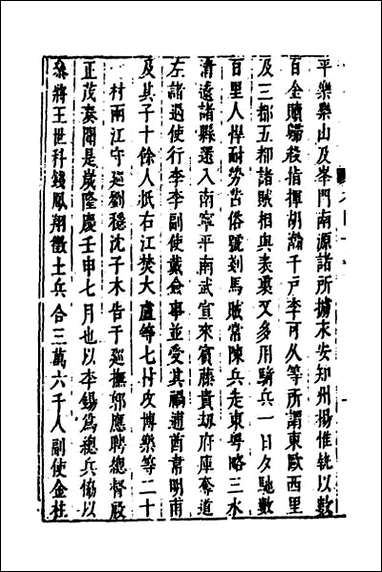 平樂樂山及峯門南源諸所擄末安知州揚惟銑以數
百金贖歸殺指揮胡瀚千戶李可久等所謂東歐西里
及三都五都諸賊相與表裏又多用騎兵一日夕馳數
百里人悍耐勞苦俗號剗馬賊常陳兵走東粤略三水
清遠諸縣還入南寧平南武宣來賓藤貴刼府庫奪道
左諸過使行李副使戴僉事並受其禍逋酋韋明甫
及其子十餘人扺右江焚大盧等七村攻博樂等二十
村兩江守廵劉穩沈子木告于廵撫郭應聘總督殷
正茂奏聞是歲隆慶壬申七月也以李錫爲總兵協以
叅將王世科錢鳳翔徵土兵合三萬六千人副使金柱